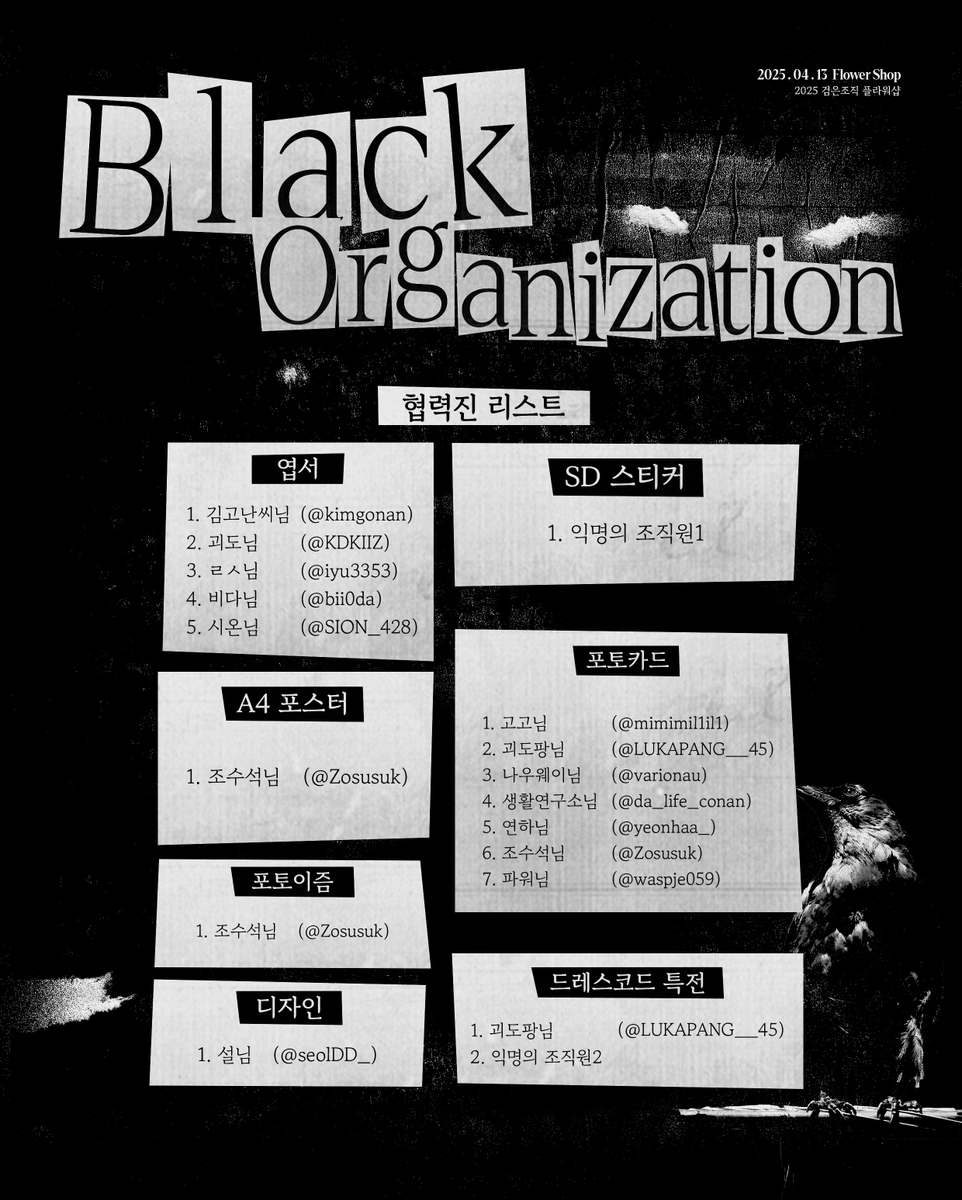 2025.04.13 Flower Shop
2025 검은조직 플라워샵
Black
Organization
협력진 리스트
엽서
1. 김고난씨님 (@kimgonan)
2. 괴도님 (@KDKIIZ)
3. ㄹㅅ님 (@iyu3353)
4. 비다님 (@bii0da)
5. 시온님 (@SION_428)
A4 포스터
1. 조수석님 (@Zosusuk)
포토이즘
1. 조수석님 (@Zosusuk)
디자인
1. 설님 (@seolDD_)
SD 스티커
1. 익명의 조직원1
포토카드
1. 고고님 (@mimimil1il1)
2. 괴도팡님 (@LUKAPANG__45)
3. 나우웨이님 (@varionau)
4. 생활연구소님 (@da_life_conan)
5. 연하님 (@yeonhaa_)
6. 조수석님 (@Zosusuk)
7. 파워님 (@waspje059)
드레스코드 특전
1. 괴도팡님 (@LUKAPANG__45)
2. 익명의 조직원2